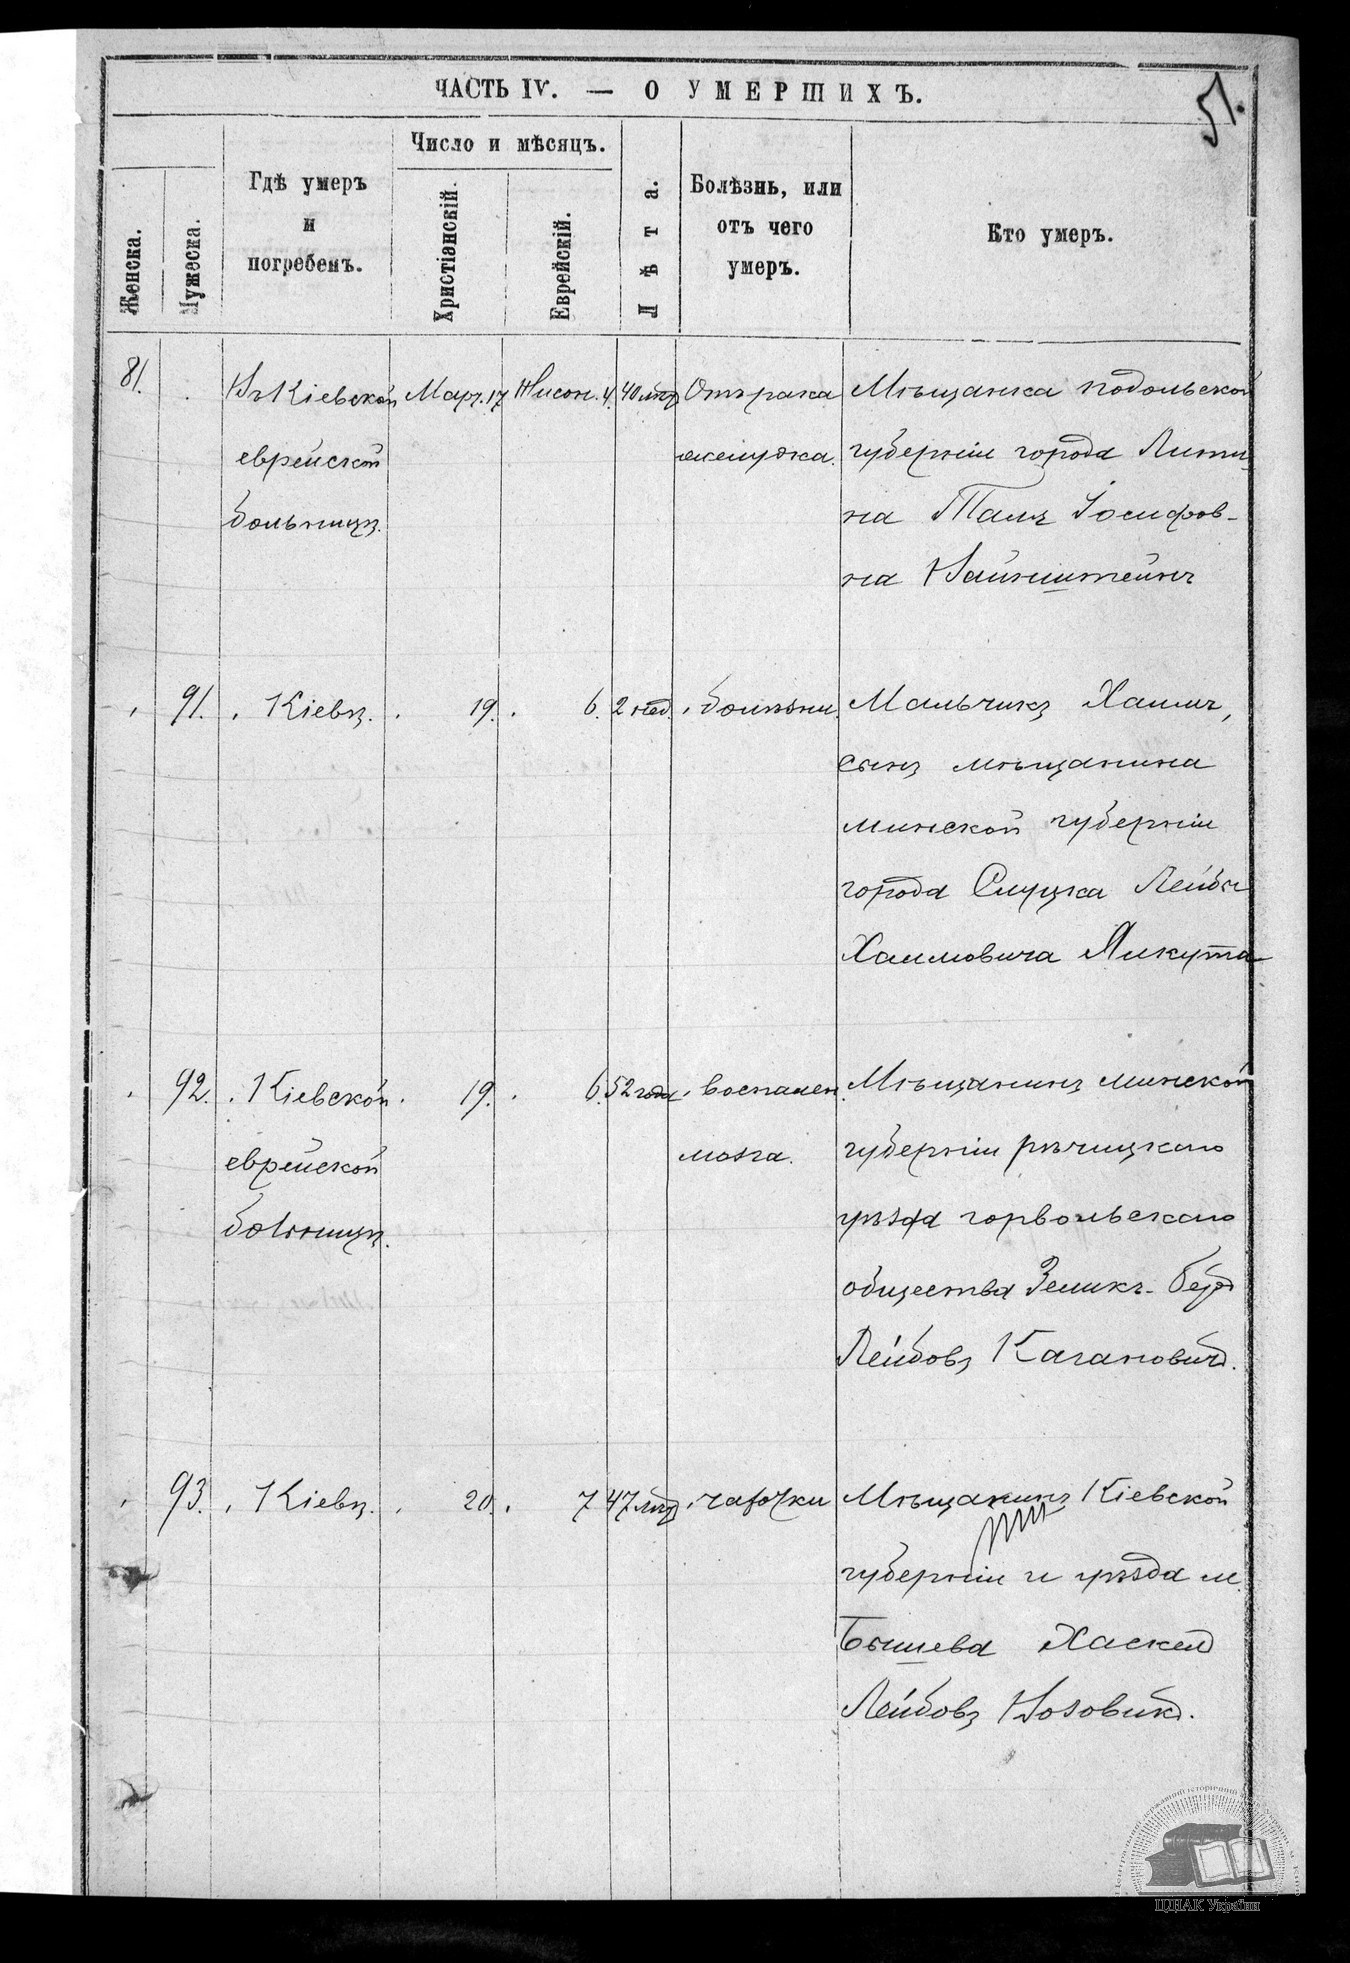 ЧАСТЬ IV. — О УМЕРШИХЪ.
51.
Женска.
Мужеска.
Гдѣ умеръ
и
погребенъ.
Число и мѣсяцъ.
Христіанскій.
Еврейскій.
Лѣта.
Болѣзнь, или
отъ чего
умеръ.
Кто умеръ.
81. Въ Кіевской Мар. 17 Нисон. 4. 40 лѣтъ Отъ рака Мѣщанка подольской
еврейской желудка. губерніи города Лити
больницѣ. на Іосифов-
на Вайнштейнъ
91. Кіевѣ. 19. 6. 2 нед. болѣзни. Мальчикъ Хаимъ,
сынъ мѣщанина
минской губерніи
города Слуцка Лейбы
Хаимовича
92. Кіевской 19. 6. 52 года воспален. Мѣщанинъ минской
еврейской мозга. губерніи рѣчицкаго
больницѣ. уѣзда горвольскаго
общества Зеликъ-Беръ
Лейбовъ Кагановичъ.
93. Кіевѣ. 20. 7 47 лѣтъ чахотки Мѣщанинъ Кіевской
губерніи и уѣзда м.
Бышева Хаскель
Лейбовъ Новикъ.
ЦДІАК України